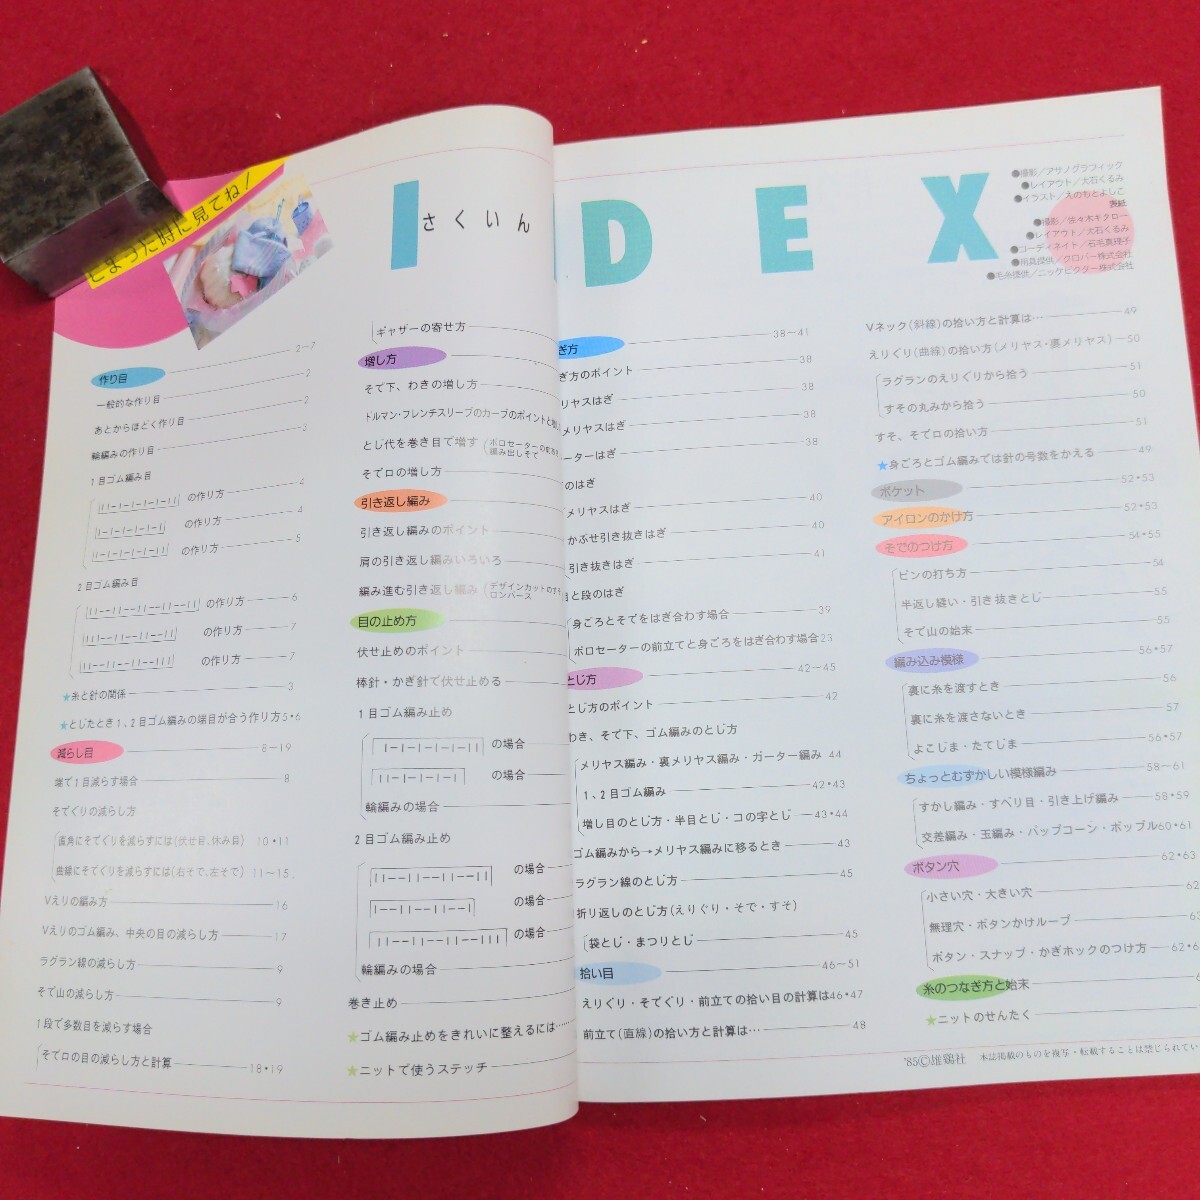 見てね!
I DEX
さくいん
●撮影／アサノグラフィック
●レイアウト／大石くるみ
●イラスト／えのもとよしこ
表紙
●撮影／佐々木キタロー
●レイアウト／大石くるみ
●コーディネイト／石毛真理子
●用具提供／クロバー株式会社
●毛糸提供／ニッケビクター株式会社
作り目 2〜7
一般的な作り目 2
あとからほどく作り目 2
輪編みの作り目 3
1目ゴム編み目
の作り方 4
の作り方 4
の作り方 5
2目ゴム編み目
の作り方 6
の作り方 7
の作り方 7
★糸と針の関係 3
★とじたとき1、2目ゴム編みの端目が合う作り方 5・6
減らし目 8〜19
端で1目減らす場合 8
そでぐりの減らし方
直角にそでぐりを減らすには(伏せ目、休み目) 10・11
曲線にそでぐりを減らすには(右そで、左そで) 11〜15
Vえりの編み方 16
Vえりのゴム編み、中央の目の減らし方 17
ラグラン線の減らし方 9
そで山の減らし方 9
1段で多数目を減らす場合
そで口の目の減らし方と計算 18・19
ギャザーの寄せ方
増し方
そで下、わきの増し方
ドルマン・フレンチスリーブのカーブのポイントと
とじ代を巻き目で増す
そで口の増し方
引き返し編み
引き返し編みのポイント
肩の引き返し編みいろいろ
編み進む引き返し編み
目の止め方
伏せ止めのポイント
棒針・かぎ針で伏せ止める
1目ゴム編み止め
の場合
の場合
輪編みの場合
2目ゴム編み止め
の場合
の場合
の場合
輪編みの場合
巻き止め
★ゴム編み止めをきれいに整えるには……
★ニットで使うステッチ
ぎ方 38〜41
ぎ方のポイント 38
リヤスはぎ 38
メリヤスはぎ 38
ーターはぎ 38
のはぎ
メリヤスはぎ 40
かぶせ引き抜きはぎ 40
引き抜きはぎ 41
目と段のはぎ
身ごろとそでをはぎ合わす場合 39
ポロセーターの前立てと身ごろをはぎ合わす場合 23
とじ方 42〜45
とじ方のポイント 42
わき、そで下、ゴム編みのとじ方
メリヤス編み・裏メリヤス編み・ガーター編み 44
1、2目ゴム編み 42・43
増し目のとじ方・半目とじ・コの字とじ 43・44
ゴム編みから→メリヤス編みに移るとき 43
ラグラン線のとじ方 45
折り返しのとじ方(えりぐり・そで・すそ)
袋とじ・まつりとじ 45
拾い目 46〜51
えりぐり・そでぐり・前立ての拾い目の計算は 46・47
前立て(直線)の拾い方と計算は… 48
Vネック(斜線)の拾い方と計算は… 49
えりぐり(曲線)の拾い方(メリヤス・裏メリヤス) 50
ラグランのえりぐりから拾う 51
すその丸みから拾う 50
すそ、そで口の拾い方 51
★身ごろとゴム編みでは針の号数をかえる 49
ポケット 52・53
アイロンのかけ方 52・53
そでのつけ方 54・55
ピンの打ち方 54
半返し縫い・引き抜きとじ 55
そで山の始末 55
編み込み模様 56・57
裏に糸を渡すとき 56
裏に糸を渡さないとき 57
よこじま・たてじま 56・57
ちょっとむずかしい模様編み 58〜61
すかし編み・すべり目・引き上げ編み 58・59
交差編み・玉編み・パップコーン・ポップル 60・61
ボタン穴 62・63
小さい穴・大きい穴 62
無理穴・ボタンかけループ
ボタン・スナップ・かぎホックのつけ方
糸のつなぎ方と始末
★ニットのせんたく
'85©雄鶏社 本誌掲載のものを複写・転載することは禁じられてい